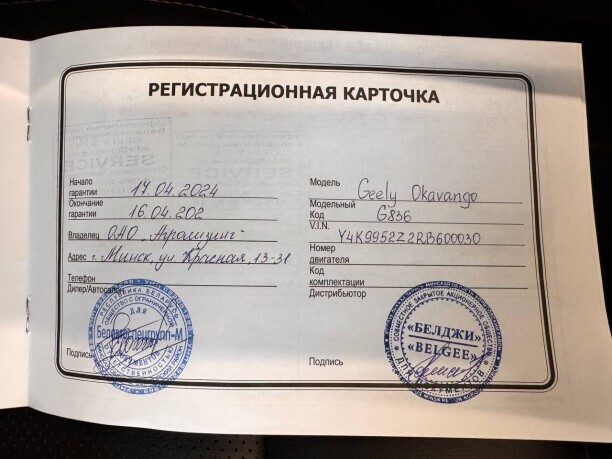 РЕГИСТРАЦИОННАЯ КАРТОЧКА
SERVICE
Начало
гарантии 17.04.2024
Окончание
гарантии 16.04.202
Владелец ОАО „Агролизинг"
Адрес г. Минск, ул. Красная, 13-31
Телефон
Дилер/Автосалон
РЕСПУБЛИКА БЕЛАРУСЬ
для
документов
Подпись
Модель Geely Okavango
Модельный
Код G836
V.I.N. Y4K9952Z2RB600030
Номер
двигателя
Код
комплектации
Дистрибьютор
СОВМЕСТНОЕ ЗАКРЫТОЕ АКЦИОНЕРНОЕ ОБЩЕСТВО
«БЕЛДЖИ»
«BELGEE»
ДЛЯ ДОКУМЕНТОВ
Подпись